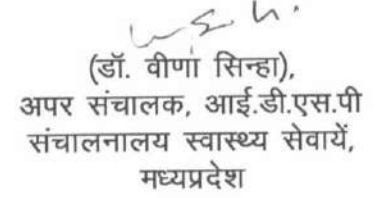 (डॉ. वीणा सिन्हा),
अपर संचालक, आई.डी.एस.पी
संचालनालय स्वास्थ्य सेवायें,
मध्यप्रदेश